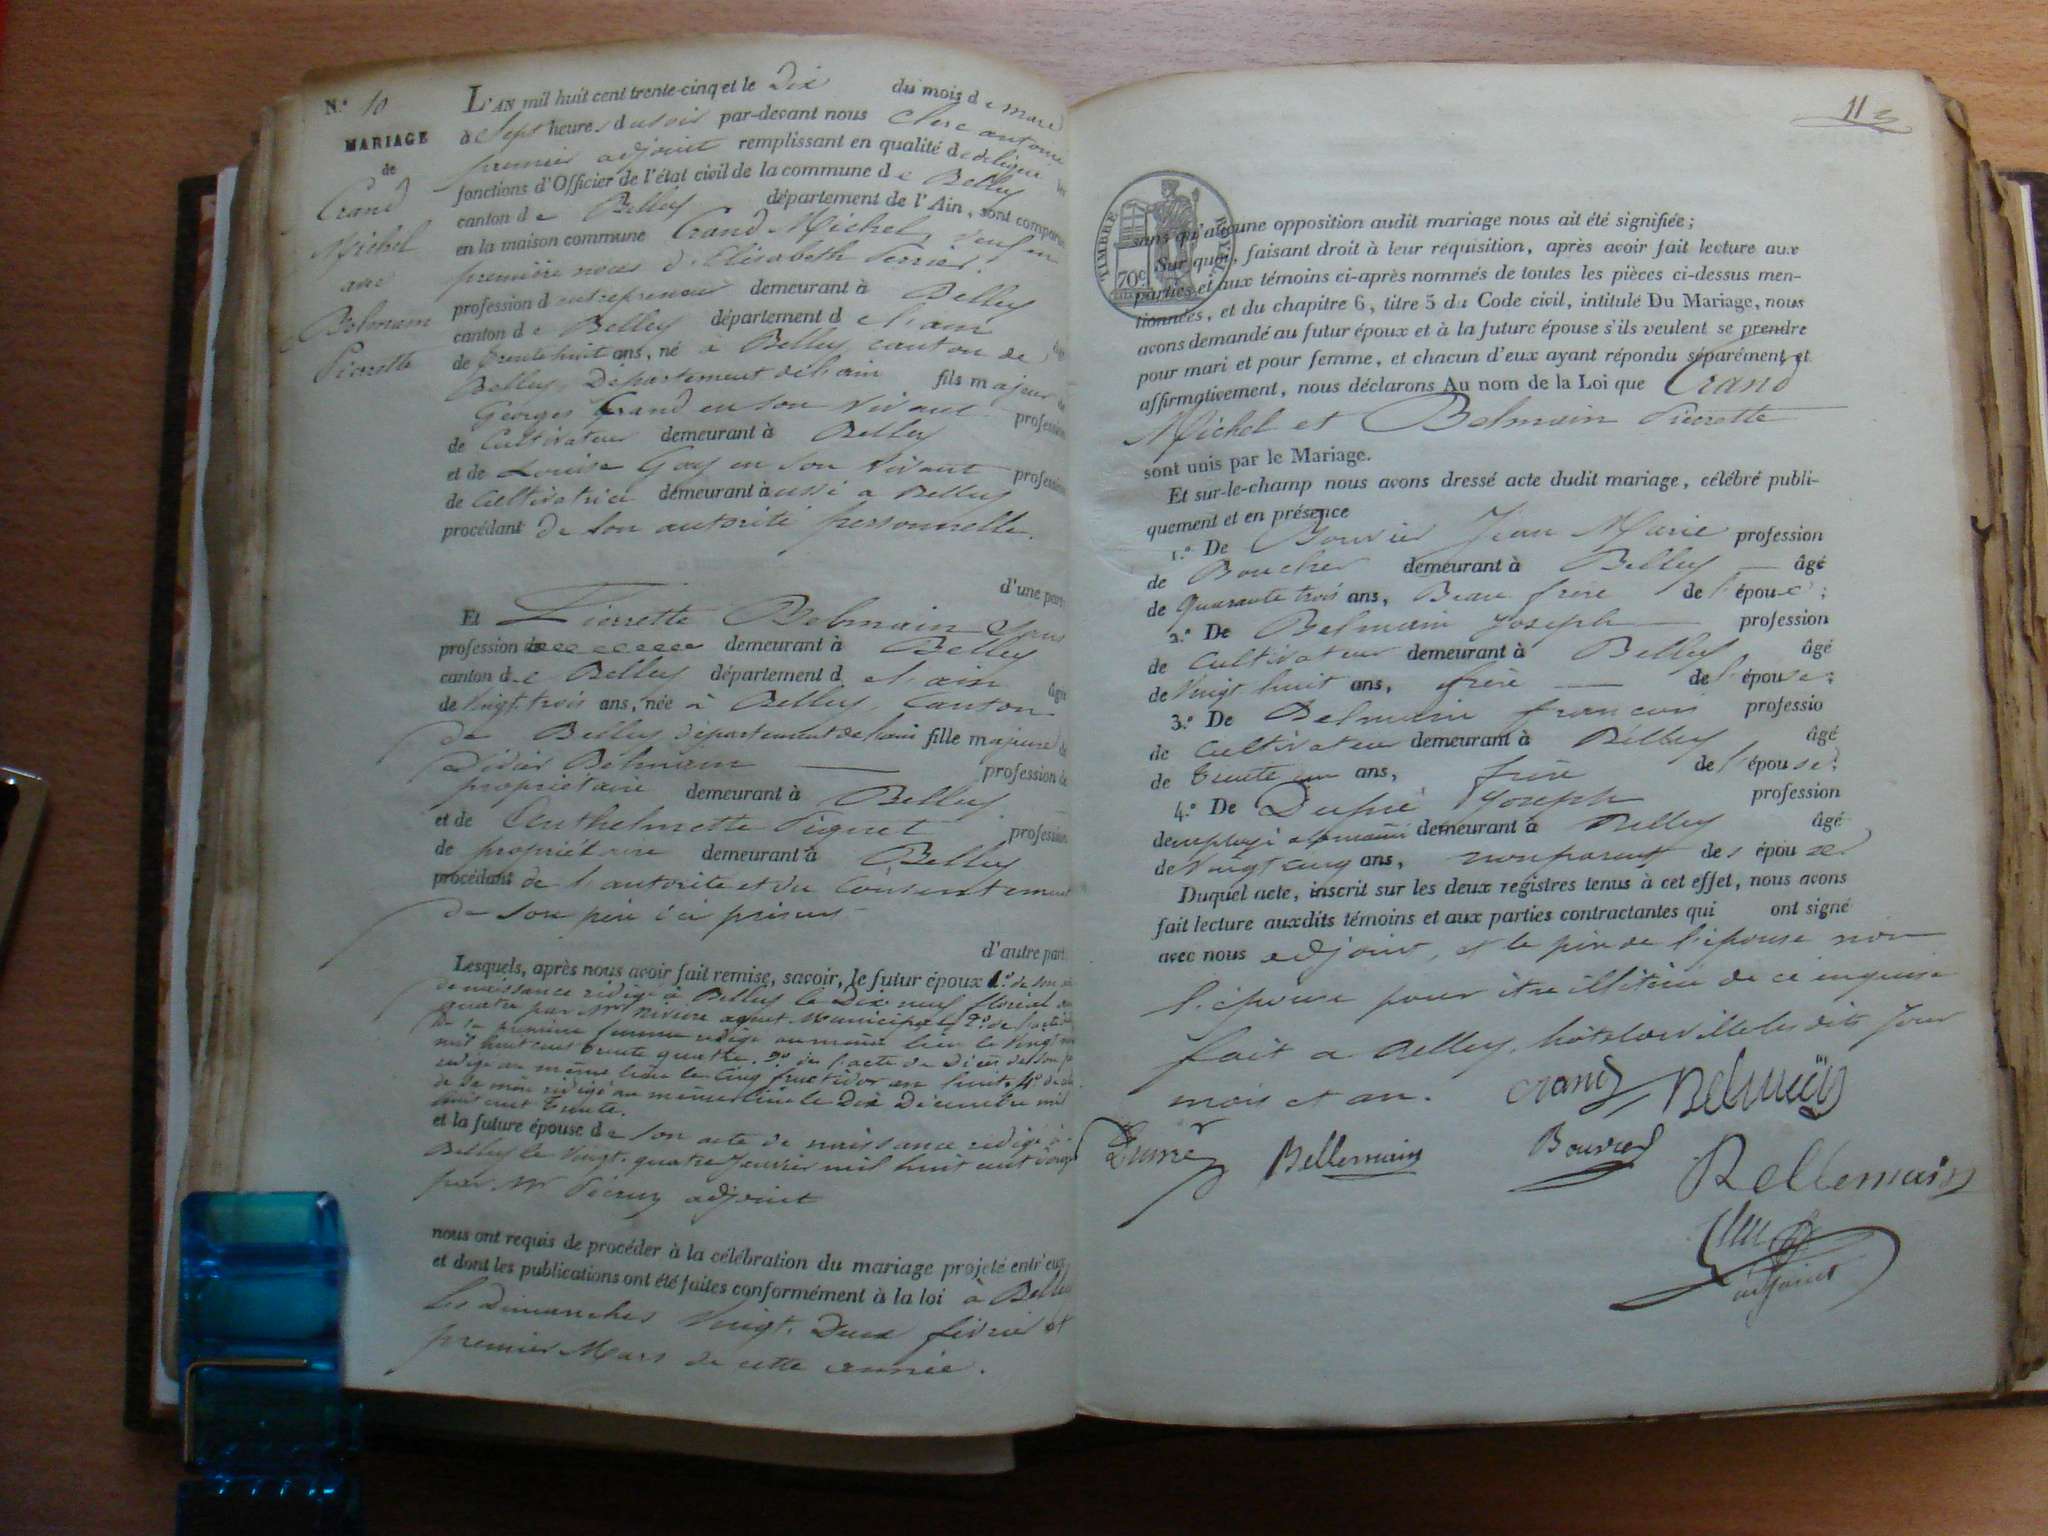 N.º 10
MARIAGE
de
Crand
Michel
avec
Belmain
Pierrette
L'AN mil huit cent trente-cinq et le Dix du mois de mars
à Sept heures du soir par-devant nous Clerc antoine
premier adjoint remplissant en qualité de délégué les
fonctions d'Officier de l'état civil de la commune de Belley
canton de Belley département de l'Ain, sont comparus
en la maison commune Crand Michel, veuf en
première noces d'Elisabeth Perrier.
profession d'entrepreneur demeurant à Belley
canton de Belley département de l'ain âgé
de trente huit ans, né à Belley canton de
Belley, Département de l'ain fils majeur de
Georges Crand en son vivant profession
de Cultivateur demeurant à Belley
et de Louise Gay en son vivant profession
de Cultivatrice demeurant aussi a Belley
procédant de son autorité personnelle.
d'une part;
Et Pierrette Belmain Sans
profession demeurant à Belley
canton de Belley département de l'ain âgée
de Vingt-trois ans, née à Belley, Canton
de Belley département de l'ain fille majeure de
Didier Belmain profession de
propriétaire demeurant à Belley
et de Anthelmette Piquet profession
de propriétaire demeurant à Belley
procédant de l'autorité et du Consentement
de son père ici présent
d'autre part.
Lesquels, après nous avoir fait remise, savoir, le futur époux 1.º de son acte
de naissance rédigé à Belley le Dix neuf floréal an
quatre par Mr agent Municipal 2.º de l'acte
de sa première femme rédigé au même lieu le Vingt
mil huit cent trente quatre. 3.º de l'acte de Décès de son père
rédigé au même lieu le Cinq fructidor an huit. 4.º de celui
de sa mère rédigé au même lieu le Dix Décembre mil
huit cent trente.
et la future épouse de son acte de naissance rédigé à
Belley le Vingt-quatre Janvier mil huit cent douze
par Mr adjoint
nous ont requis de procéder à la célébration du mariage projeté entr'eux,
et dont les publications ont été faites conformément à la loi à Belley
les Dimanches Vingt-Deux février et
premier Mars de cette année.
113
TIMBRE ROYAL
70c
sans qu'aucune opposition audit mariage nous ait été signifiée;
Sur quoi, faisant droit à leur requisition, après avoir fait lecture aux
parties et aux témoins ci-après nommés de toutes les pièces ci-dessus men-
tionnées, et du chapitre 6, titre 5 du Code civil, intitulé Du Mariage, nous
avons demandé au futur époux et à la future épouse s'ils veulent se prendre
pour mari et pour femme, et chacun d'eux ayant répondu séparément et
affirmativement, nous déclarons Au nom de la Loi que Crand
Michel et Belmain Pierrette
sont unis par le Mariage.
Et sur-le-champ nous avons dressé acte dudit mariage, célébré publi-
quement et en présence
1.º De Bouvier Jean Marie profession
de Boucher demeurant à Belley âgé
de Quarante trois ans, Beau frère de l'épouse;
2.º De Belmain Joseph profession
de Cultivateur demeurant à Belley âgé
de Vingt huit ans, frère de l'épouse;
3.º De Belmain françois professio
de Cultivateur demeurant à Belley âgé
de trente un ans, frère de l'épouse;
4.º De Dupré Joseph profession
de employé demeurant à Belley âgé
de Vingt cinq ans, non parent des épouxe
Duquel acte, inscrit sur les deux registres tenus à cet effet, nous avons
fait lecture auxdits témoins et aux parties contractantes qui ont signé
avec nous adjoint, et le père de l'épouse non
l'épouse pour être illitérée de ce enquise
fait a Belley, hôtel de ville les dits Jour
mois et an.
Crand Belmain
Dupré Bellemain Bouvier Bellemain
Clerc
adjoint